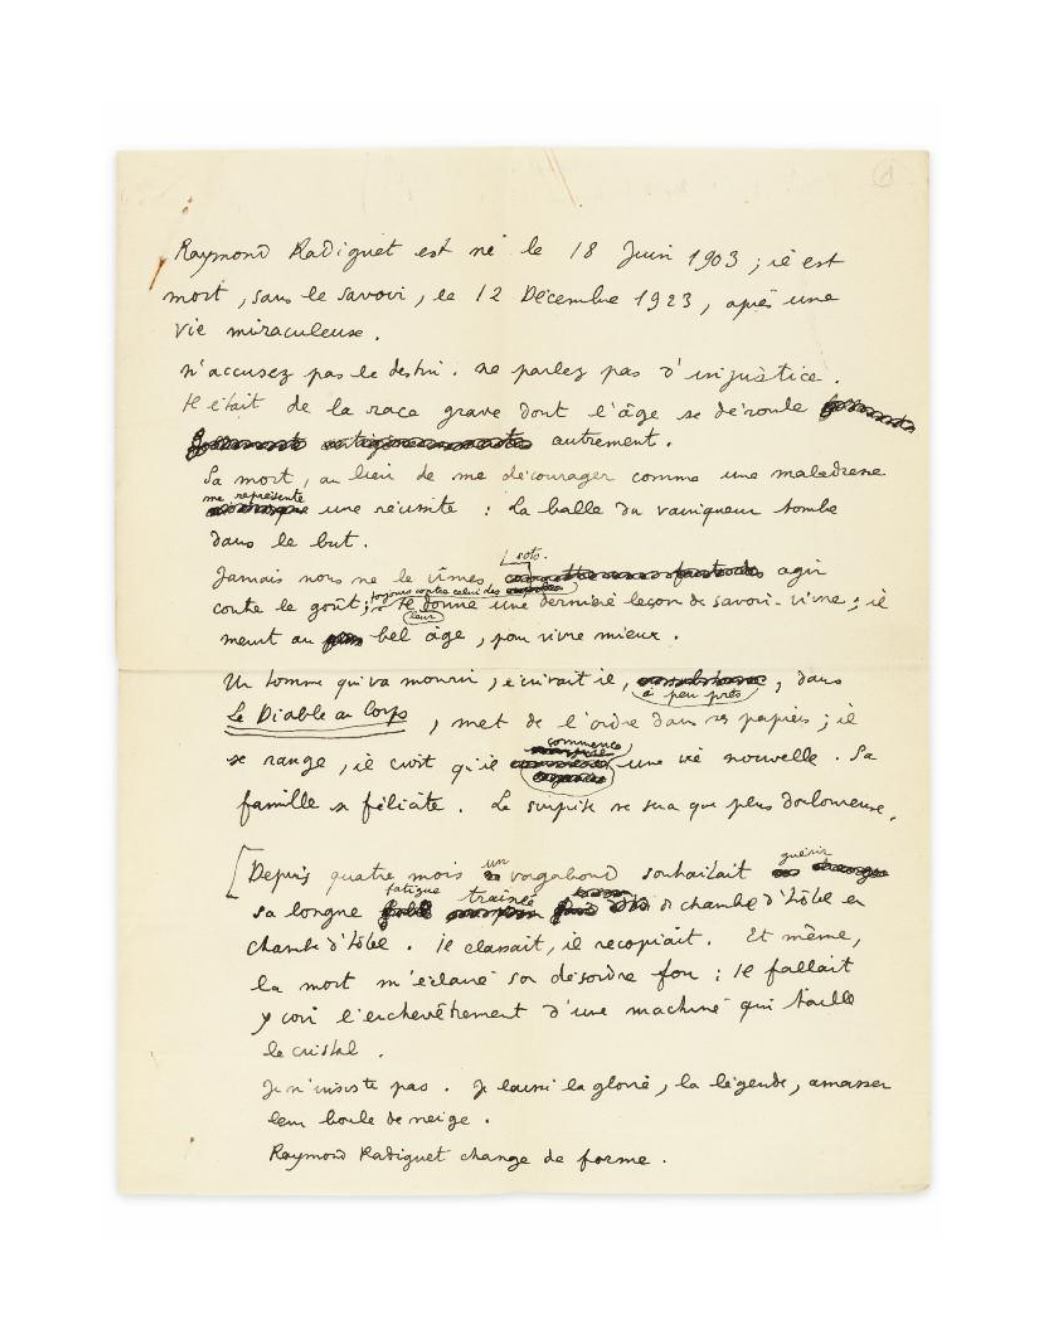 Raymond Radiguet est né le 18 Juin 1903 ; il est
mort, sans le savoir, le 12 Décembre 1923, après une
vie miraculeuse.
n'accusez pas le destin. ne parlez pas d'injustice.
Il était de la race grave dont l'âge se déroule
autrement.
Sa mort, au lieu de me décourager comme une maladresse
me représente
une réussite : La balle du vainqueur tombe
dans le but.
sots.
Jamais nous ne le vîmes, agir
toujours contre celui des
contre le goût; Il donne une dernière leçon de savoir-vivre ; il
leur
meurt au bel âge, pour vivre mieux.
Un homme qui va mourir, écrivait il, , dans
à peu près
Le Diable au Corps, met de l'ordre dans ses papiers ; il
commence
se range, il croit qu'il une vie nouvelle. Sa
famille se félicite. La surprise ne sera que plus douloureuse.
un guérir
Depuis quatre mois vagabond souhaitait
fatigue traînée
sa longue d chambe d'hôtel en
chambe d'hôtel. Il classait, il recopiait. Et même,
la mort m'éclaire son désordre fou : Il fallait
y voir l'enchevêtrement d'une machine qui taille
le cristal.
Je n'insiste pas. Je laisse la gloire, la légende, amasser
leur boule de neige.
Raymond Radiguet change de forme.